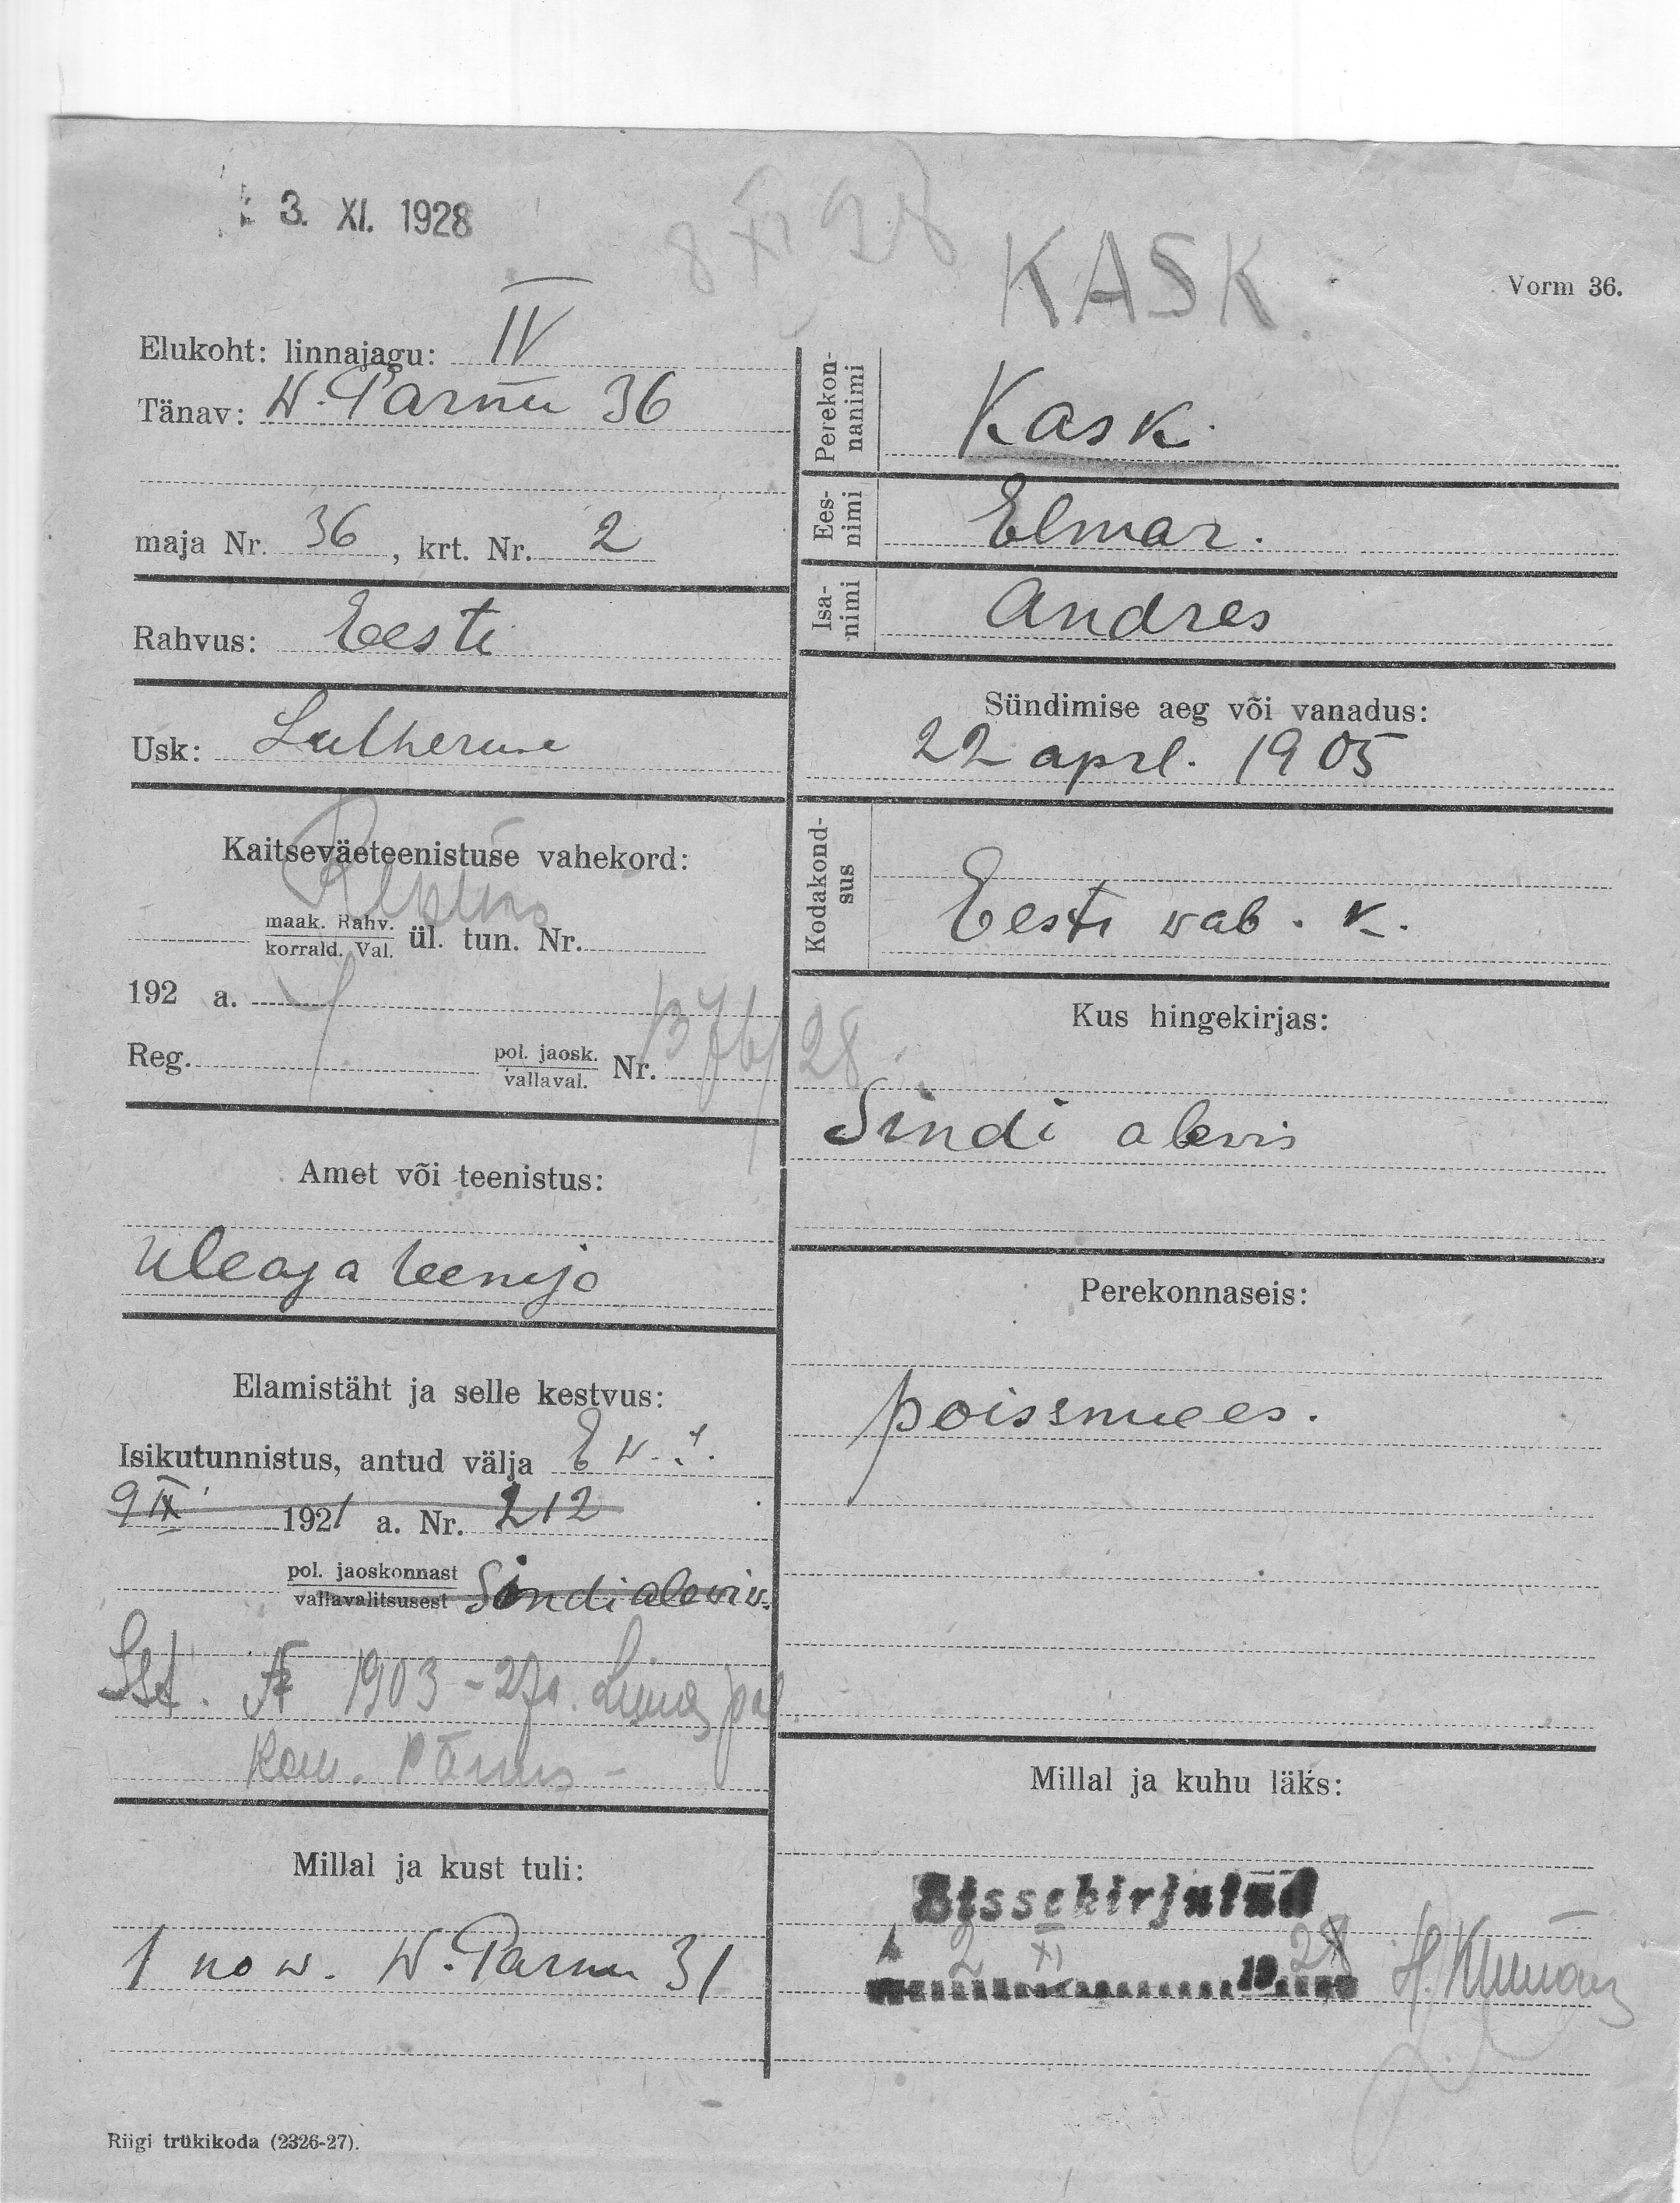 3. XI. 1928
8 XI 28
KASK.
Vorm 36.
Elukoht: linnajagu: IV
Tänav: W. Pärnu 36
maja Nr. 36, krt. Nr. 2
Rahvus: Eesti
Usk: Lutheruse
Kaitseväeteenistuse vahekord:
maak. Rahv.
korrald. Val. ül. tun. Nr.
192 a.
Reg. pol. jaosk.
vallaval. Nr. 1376/28
Amet või teenistus:
Uleaja teenija
Elamistäht ja selle kestvus:
Isikutunnistus, antud välja
9 IX 1921 a. Nr. 212
pol. jaoskonnast
vallavalitsusest Sindi aleviv.
1903 - 27a.
Pärnus -
Millal ja kust tuli:
1 now. W. Pärnu 31
Riigi trükikoda (2326-27).
Perekonnanimi Kask.
Eesnimi Elmar.
Isanimi Andres
Sündimise aeg või vanadus:
22 aprl. 1905
Kodakondsus
Eesti wab. k.
Kus hingekirjas:
Sindi alewis
Perekonnaseis:
poissmees.
Millal ja kuhu läks:
Sissekirjutud
2 XI 1928